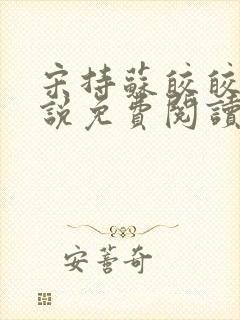 宋持蘇皎皎
說免費閱讀
安薏奇